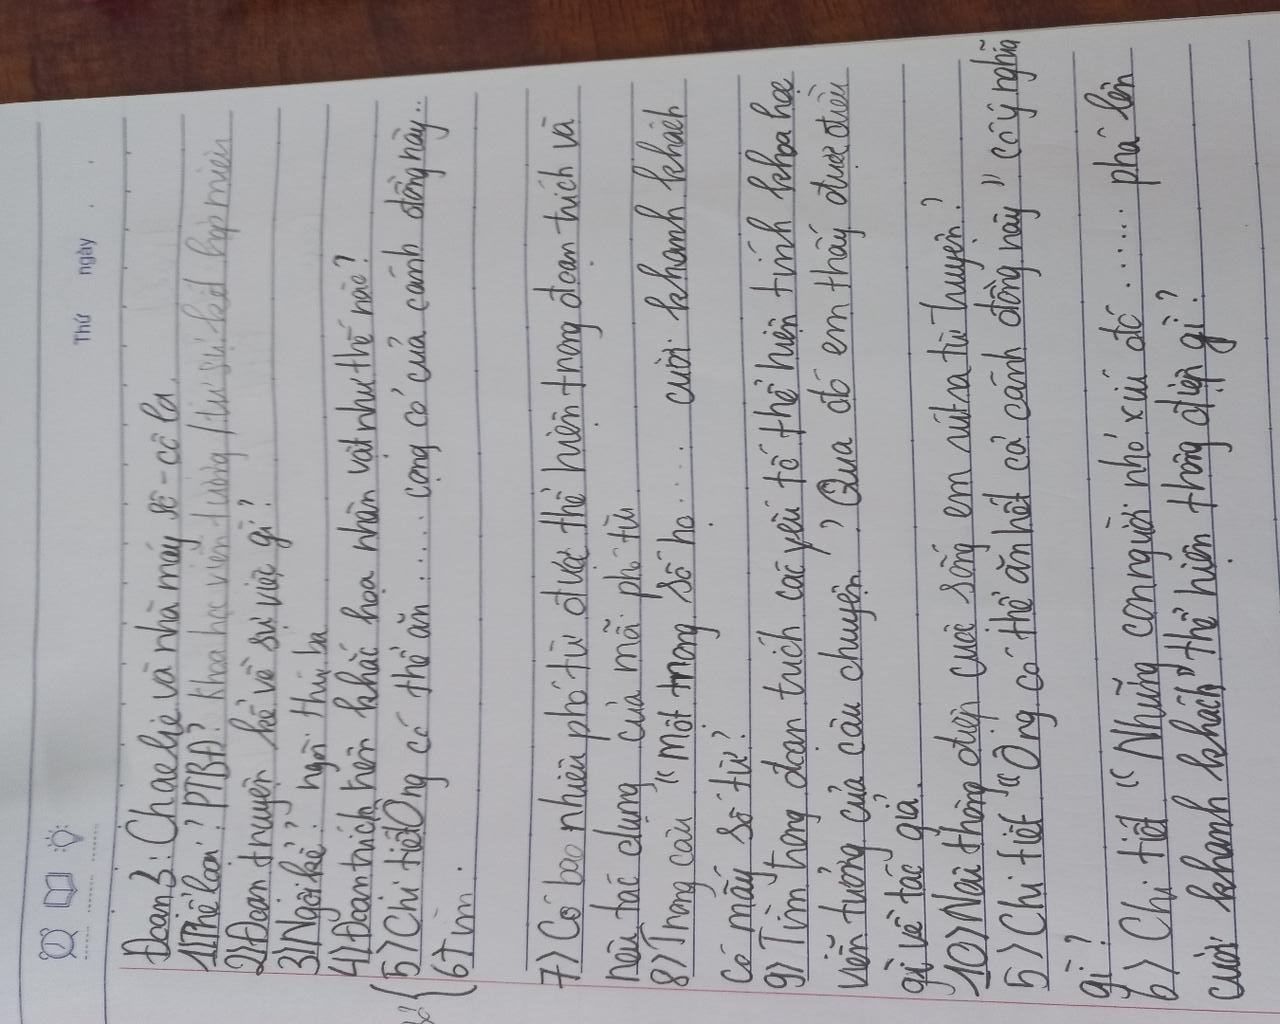 Thứ ngày
Đoạn 3: Chaelie và nhà máy sô-cô la.
1) Thể loại? PTBĐ? khoa học viễn tưởng / tự sự kết hợp miêu
2) Đoạn truyện kể về sự việc gì?
3) Ngôi kể? ngôi thứ ba
4) Đoạn trích trên khắc họa nhân vật như thế nào?
5) Chi tiết Ông có thể ăn .... cọng cỏ của cánh đồng này..
6) Tìm.
7) Có bao nhiêu phó từ được thể hiện trong đoạn trích và
nêu tác dụng của mỗi phó từ.
8) Trong câu "Một trong số họ .... cười khanh khách
Có mấy số từ?
9) Tìm trong đoạn trích các yếu tố thể hiện tính khoa học
viễn tưởng của câu chuyện? Qua đó em thấy được điều
gì về tác giả.
10) Nêu thông điệp cuộc sống em rút ra từ truyện?
5) Chi tiết "Ông có thể ăn hết cả cánh đồng này" có ý nghĩa
gì?
6) Chi tiết "Những con người nhỏ xíu đó ...... phá lên
cười khanh khách" thể hiện thông điệp gì?